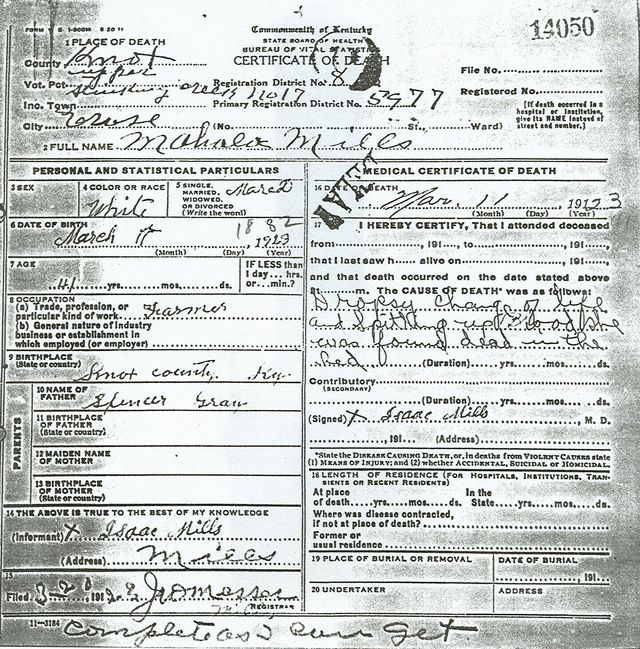 FORM V. S. 1-500M 6 20 11
Commonwealth of Kentucky
14050
STATE BOARD OF HEALTH
BUREAU OF VITAL STATISTICS
CERTIFICATE OF DEATH
1 PLACE OF DEATH
County Knox
File No.
upper
Vot. Pct. stinking creek No 17
Registration District No. 8
Registered No.
Inc. Town
Primary Registration District No. 5977
[If death occurred in a hospital or institution, give its NAME instead of street and number.]
City
(No. St., Ward)
2 FULL NAME Mahala Mills
PERSONAL AND STATISTICAL PARTICULARS
3 SEX
4 COLOR OR RACE White
5 SINGLE, MARRIED, WIDOWED, OR DIVORCED (Write the word) Mared
6 DATE OF BIRTH
1882
March 17, 1913
(Month) (Day) (Year)
7 AGE
41 yrs. mos. ds.
IF LESS than 1 day... hrs. or... min.?
8 OCCUPATION
(a) Trade, profession, or particular kind of work Farmer
(b) General nature of industry business or establishment in which employed (or employer)
9 BIRTHPLACE (State or country) Knox county, Ky.
PARENTS
10 NAME OF FATHER Spencer Gray
11 BIRTHPLACE OF FATHER (State or country)
12 MAIDEN NAME OF MOTHER
13 BIRTHPLACE OF MOTHER (State or country)
14 THE ABOVE IS TRUE TO THE BEST OF MY KNOWLEDGE
(Informant) X Isaac Mills
(Address) Mills
15
Filed 191
REGISTRAR
11-3184
MEDICAL CERTIFICATE OF DEATH
16 DATE OF DEATH
Mar. 11, 19123
(Month) (Day) (Year)
17 I HEREBY CERTIFY, That I attended deceased
from, 191 to, 191
that I last saw h alive on, 191
and that death occurred on the date stated above
at m. The CAUSE OF DEATH* was as follows:
Dropsy change of life
and spitting up Blood she
was found dead in the
bed
(Duration) yrs. mos. ds.
Contributory (SECONDARY)
(Duration) yrs. mos. ds.
(Signed) X Isaac Mills, M. D.
, 191 (Address)
*State the DISEASE CAUSING DEATH, or, in deaths from VIOLENT CAUSES state (1) MEANS OF INJURY; and (2) whether ACCIDENTAL, SUICIDAL or HOMICIDAL.
18 LENGTH OF RESIDENCE (FOR HOSPITALS, INSTITUTIONS, TRANSIENTS OR RECENT RESIDENTS)
At place of death yrs. mos. ds. In the State yrs. mos. ds.
Where was disease contracted, if not at place of death?
Former or usual residence
19 PLACE OF BURIAL OR REMOVAL
DATE OF BURIAL
, 191
20 UNDERTAKER
ADDRESS
complete as I can get